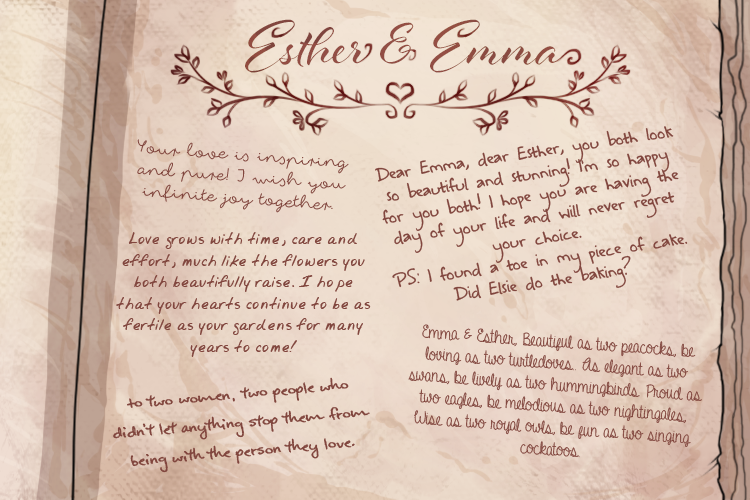 Esther & Emma
Your love is inspiring
and pure! I wish you
infinite joy together.
Love grows with time, care and
effort, much like the flowers you
both beautifully raise. I hope
that your hearts continue to be as
fertile as your gardens for many
years to come!
to two women, two people who
didn't let anything stop them from
being with the person they love.
Dear Emma, dear Esther, you both look
so beautiful and stunning! I'm so happy
for you both! I hope you are having the
day of your life and will never regret
your choice.
PS: I found a toe in my piece of cake.
Did Elsie do the baking?
Emma & Esther, Beautiful as two peacocks, be
loving as two turtledoves. As elegant as two
swans, be lively as two hummingbirds. Proud as
two eagles, be melodious as two nightingales,
Wise as two royal owls, be fun as two singing
cockatoos.